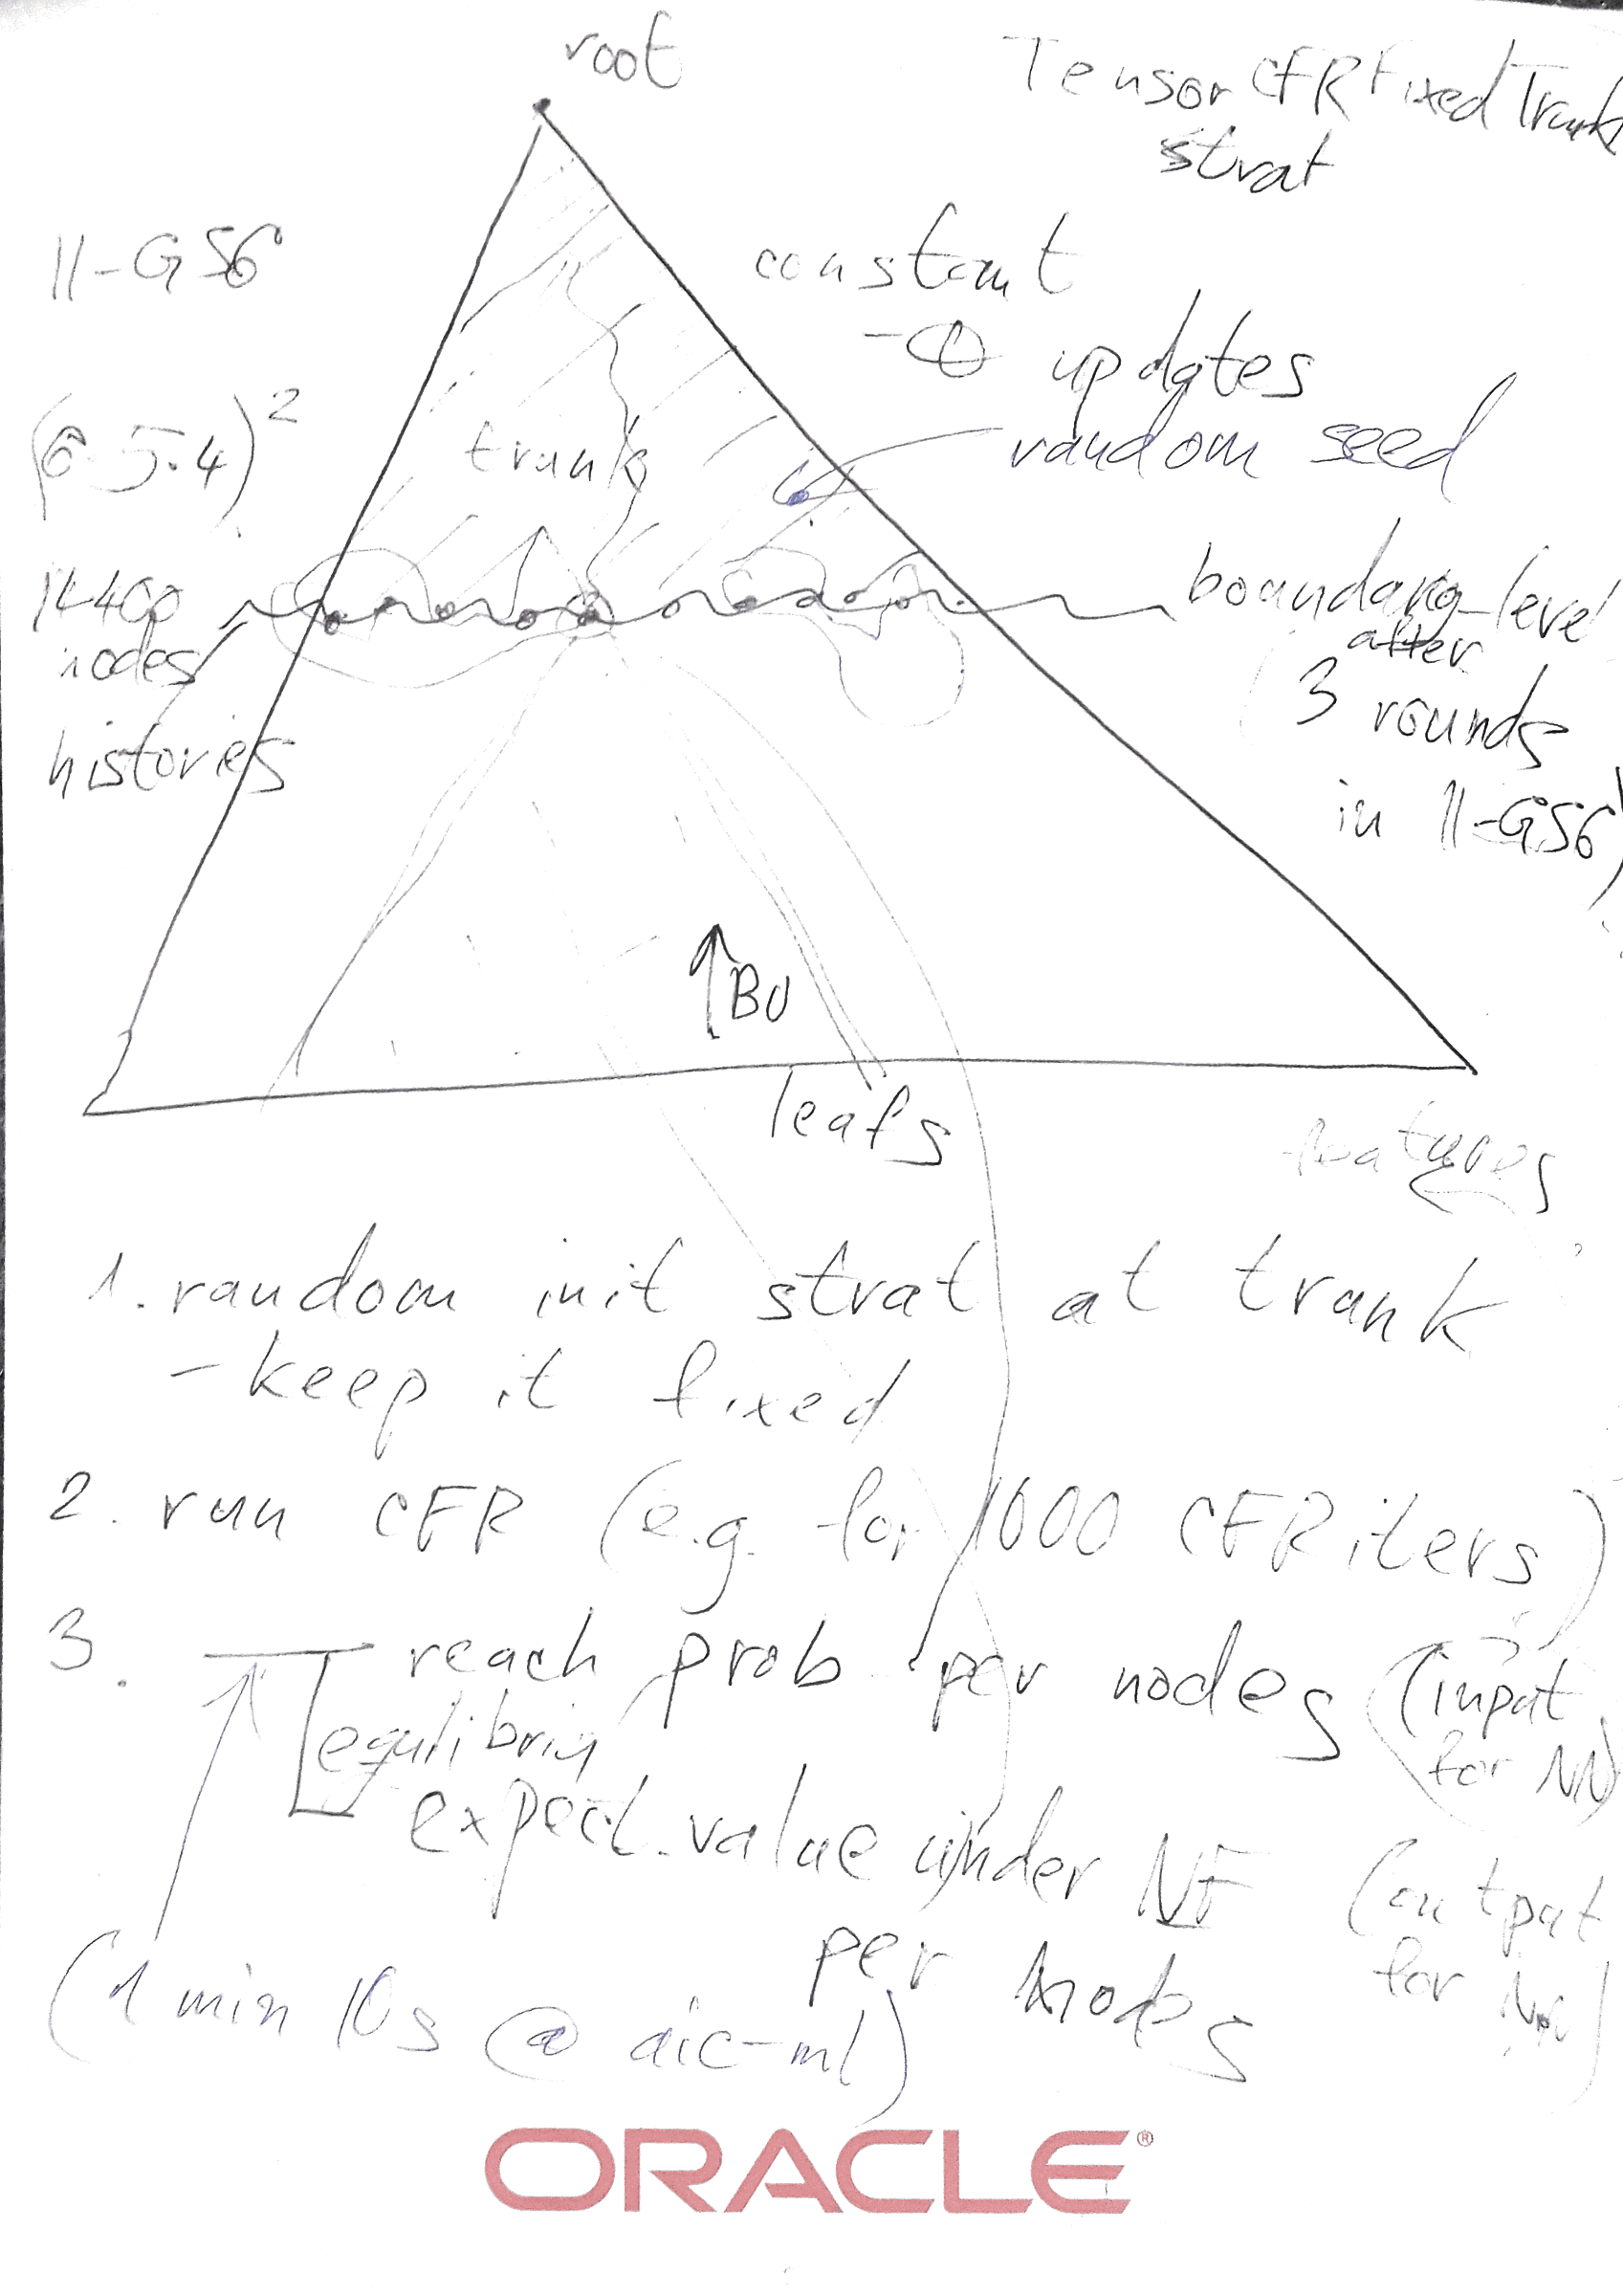 root
TensorCFRFixedTrunk
strat
II-GS6
constant
- ∅ updates
random seed
(6·5·4)²
trunk
14400
nodes
histories
boundary-level
after
3 rounds
in II-GS6)
↑BU
leafs
features
1. random init strat at trunk
- keep it fixed
2. run CFR (e.g. for 1000 CFR iters)
3. reach prob per nodes (input
for NN)
expect. value under NE (output
per nodes for NN)
(1 min 10s @ aic-ml)
ORACLE®